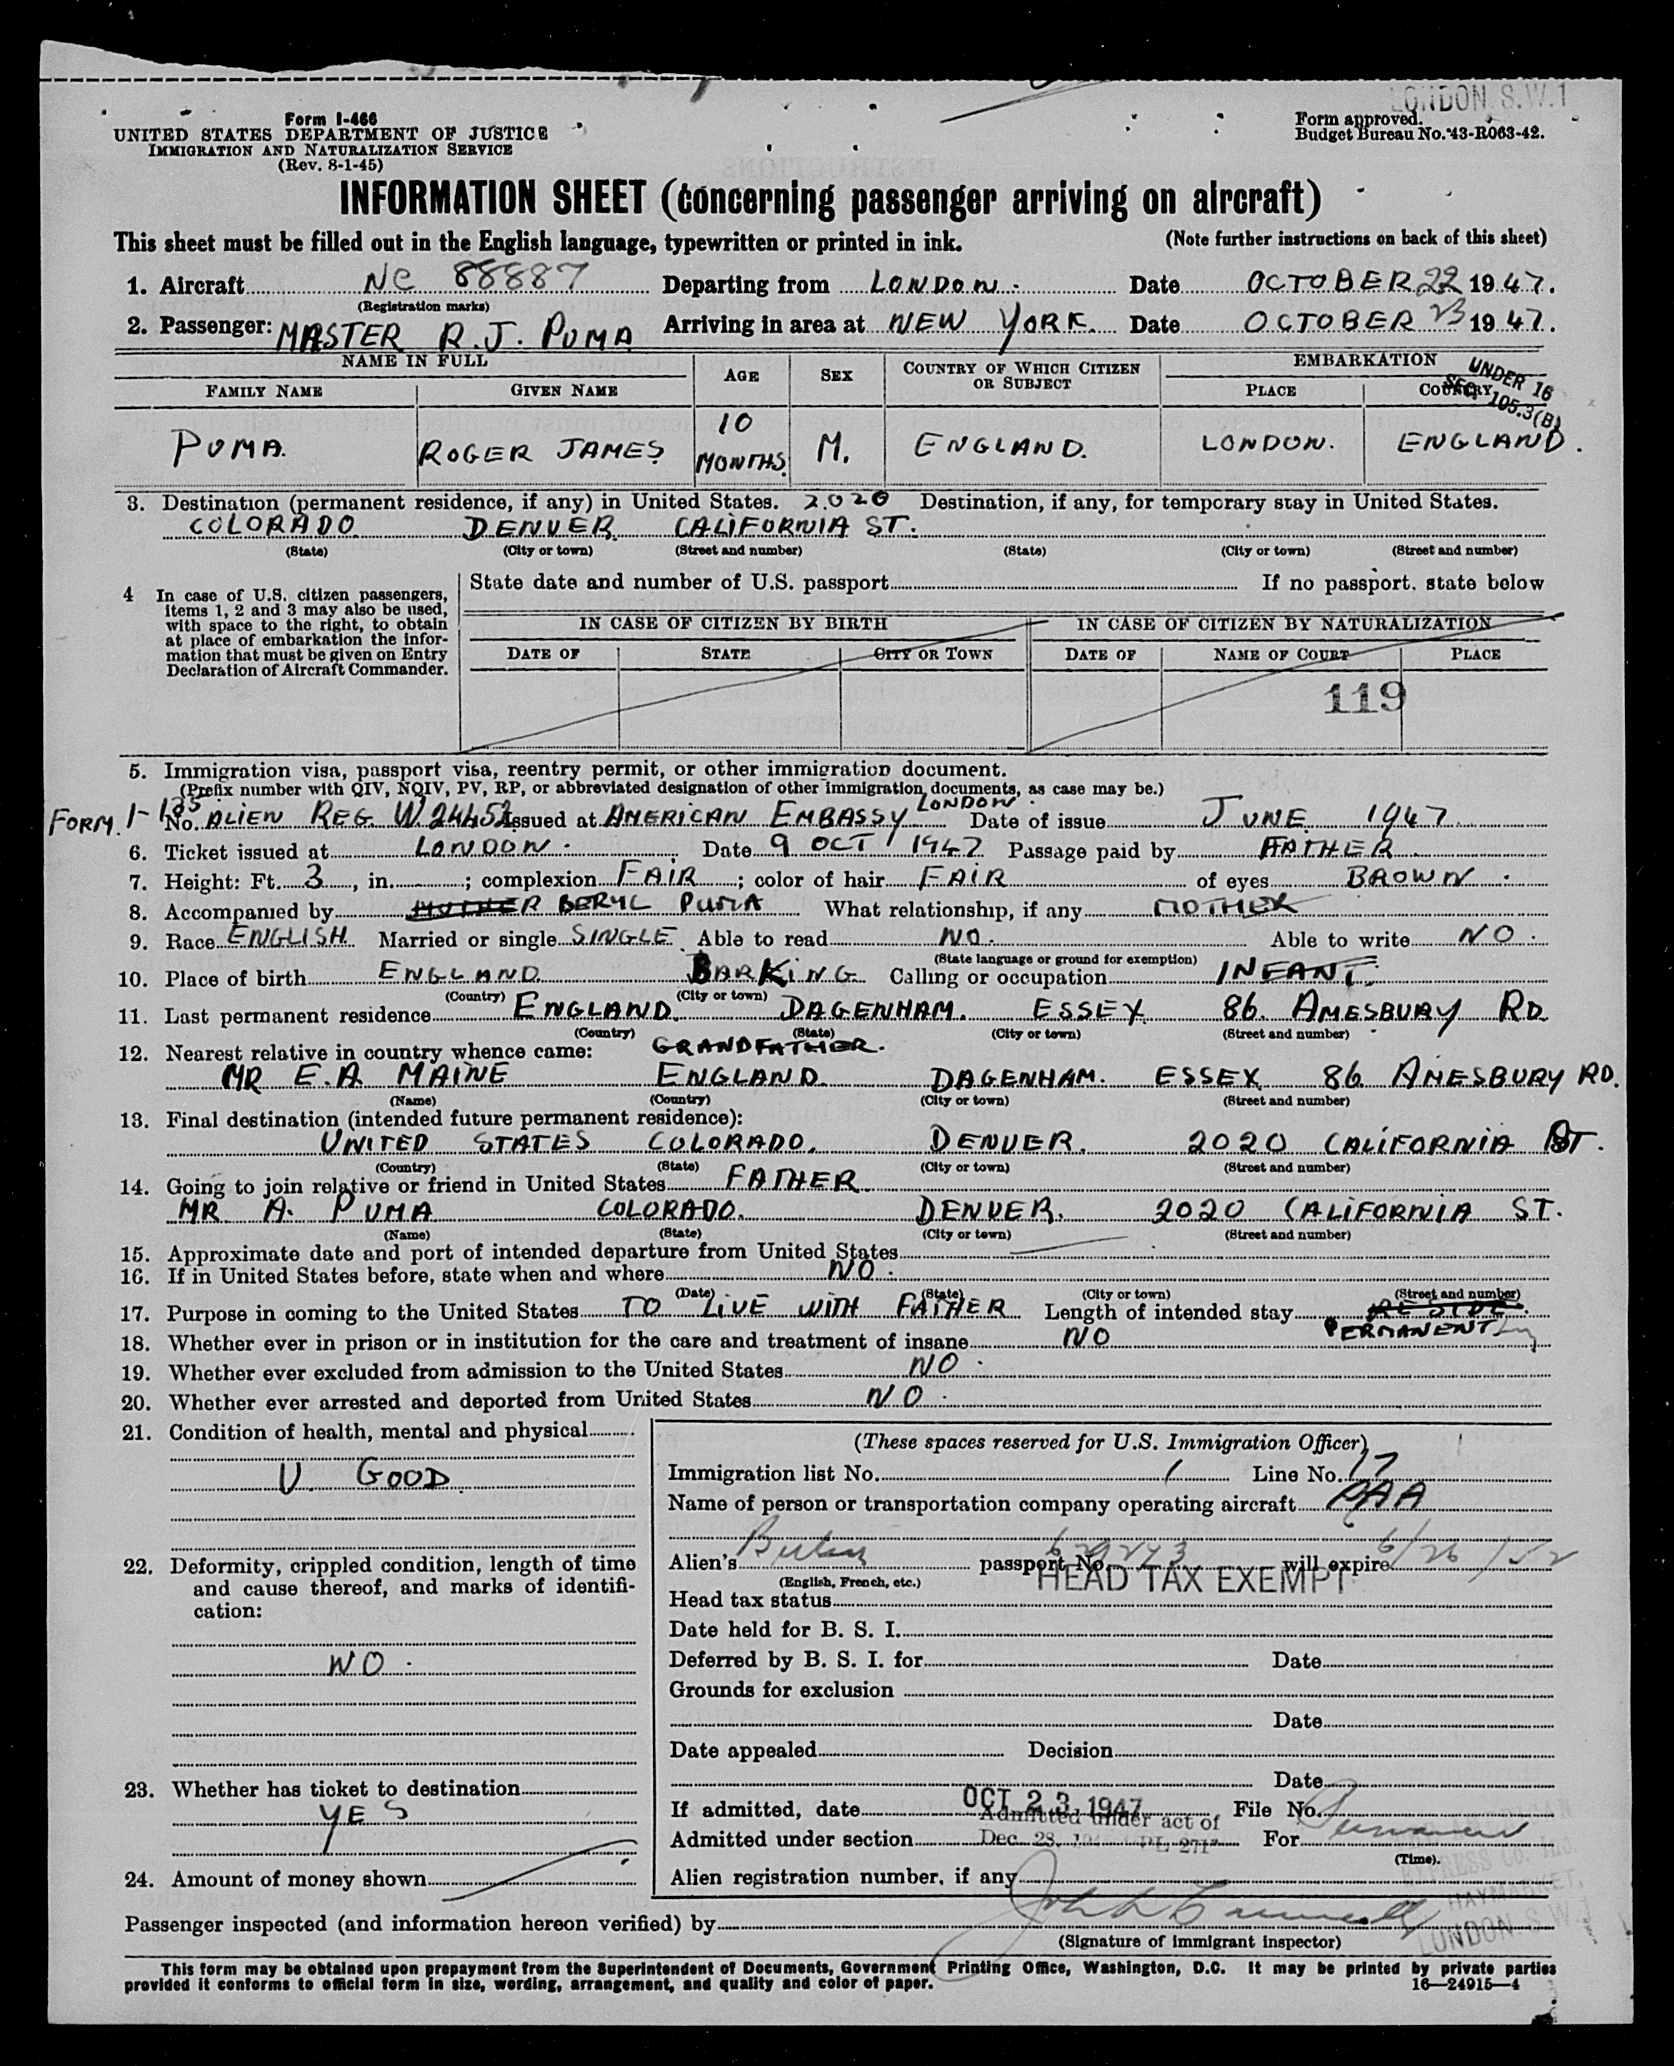 LONDON. S.W.1
Form I-466
UNITED STATES DEPARTMENT OF JUSTICE
IMMIGRATION AND NATURALIZATION SERVICE
(Rev. 8-1-45)
Form approved.
Budget Bureau No. 43-R063-42.
INFORMATION SHEET (concerning passenger arriving on aircraft)
This sheet must be filled out in the English language, typewritten or printed in ink. (Note further instructions on back of this sheet)
1. Aircraft NC 88887 Departing from LONDON. Date OCTOBER 22 1947.
(Registration marks)
2. Passenger: MASTER R.J. PUMA Arriving in area at NEW YORK. Date OCTOBER 23 1947.
NAME IN FULL AGE SEX COUNTRY OF WHICH CITIZEN OR SUBJECT EMBARKATION
FAMILY NAME GIVEN NAME PLACE COUNTRY
UNDER 16
SEC. 105.3(B)
PUMA. ROGER JAMES 10 MONTHS. M. ENGLAND. LONDON. ENGLAND.
3. Destination (permanent residence, if any) in United States. 2020 Destination, if any, for temporary stay in United States.
COLORADO DENVER CALIFORNIA ST.
(State) (City or town) (Street and number) (State) (City or town) (Street and number)
4 In case of U.S. citizen passengers, items 1, 2 and 3 may also be used, with space to the right, to obtain at place of embarkation the information that must be given on Entry Declaration of Aircraft Commander.
State date and number of U.S. passport If no passport, state below
IN CASE OF CITIZEN BY BIRTH IN CASE OF CITIZEN BY NATURALIZATION
DATE OF STATE CITY OR TOWN DATE OF NAME OF COURT PLACE
119
5. Immigration visa, passport visa, reentry permit, or other immigration document.
(Prefix number with QIV, NQIV, PV, RP, or abbreviated designation of other immigration documents, as case may be.)
FORM. I-135 No. ALIEN REG. W.24452 Issued at AMERICAN EMBASSY LONDON. Date of issue JUNE 1947
6. Ticket issued at LONDON. Date 9 OCT 1947 Passage paid by FATHER
7. Height: Ft. 3, in. ; complexion FAIR; color of hair FAIR of eyes BROWN.
8. Accompanied by MOTHER BERYL PUMA What relationship, if any MOTHER
9. Race ENGLISH Married or single SINGLE Able to read NO. Able to write NO.
(State language or ground for exemption)
10. Place of birth ENGLAND BARKING Calling or occupation INFANT.
(Country) (City or town)
11. Last permanent residence ENGLAND. DAGENHAM. ESSEX 86. AMESBURY RD.
(Country) (State) (City or town) (Street and number)
12. Nearest relative in country whence came: GRANDFATHER.
MR E.A. MAINE ENGLAND. DAGENHAM. ESSEX 86 AMESBURY RD.
(Name) (Country) (City or town) (Street and number)
13. Final destination (intended future permanent residence):
UNITED STATES COLORADO. DENVER. 2020 CALIFORNIA ST.
(Country) (State) (City or town) (Street and number)
14. Going to join relative or friend in United States FATHER
MR A. PUMA COLORADO. DENVER. 2020 CALIFORNIA ST.
(Name) (State) (City or town) (Street and number)
15. Approximate date and port of intended departure from United States
16. If in United States before, state when and where NO.
(Date) (State) (City or town) (Street and number)
17. Purpose in coming to the United States TO LIVE WITH FATHER Length of intended stay RESIDE.
PERMANENTLY
18. Whether ever in prison or in institution for the care and treatment of insane NO
19. Whether ever excluded from admission to the United States NO.
20. Whether ever arrested and deported from United States NO.
21. Condition of health, mental and physical
V. GOOD
22. Deformity, crippled condition, length of time and cause thereof, and marks of identification:
NO.
23. Whether has ticket to destination
YES
24. Amount of money shown
(These spaces reserved for U.S. Immigration Officer)
Immigration list No. 1 Line No. 17
Name of person or transportation company operating aircraft PAA
Alien's passport No. will expire 6/26/52
(English, French, etc.)
HEAD TAX EXEMPT
Head tax status
Date held for B. S. I.
Deferred by B. S. I. for Date
Grounds for exclusion
Date
Date appealed Decision
Date
If admitted, date OCT 23 1947 File No.
Admitted under act of
Admitted under section Dec. 28, PL 271 For
(Time).
Alien registration number, if any
HAYMARKET,
LONDON. S.W.1
Passenger inspected (and information hereon verified) by
(Signature of immigrant inspector)
This form may be obtained upon prepayment from the Superintendent of Documents, Government Printing Office, Washington, D.C. It may be printed by private parties
provided it conforms to official form in size, wording, arrangement, and quality and color of paper. 16—24915—4